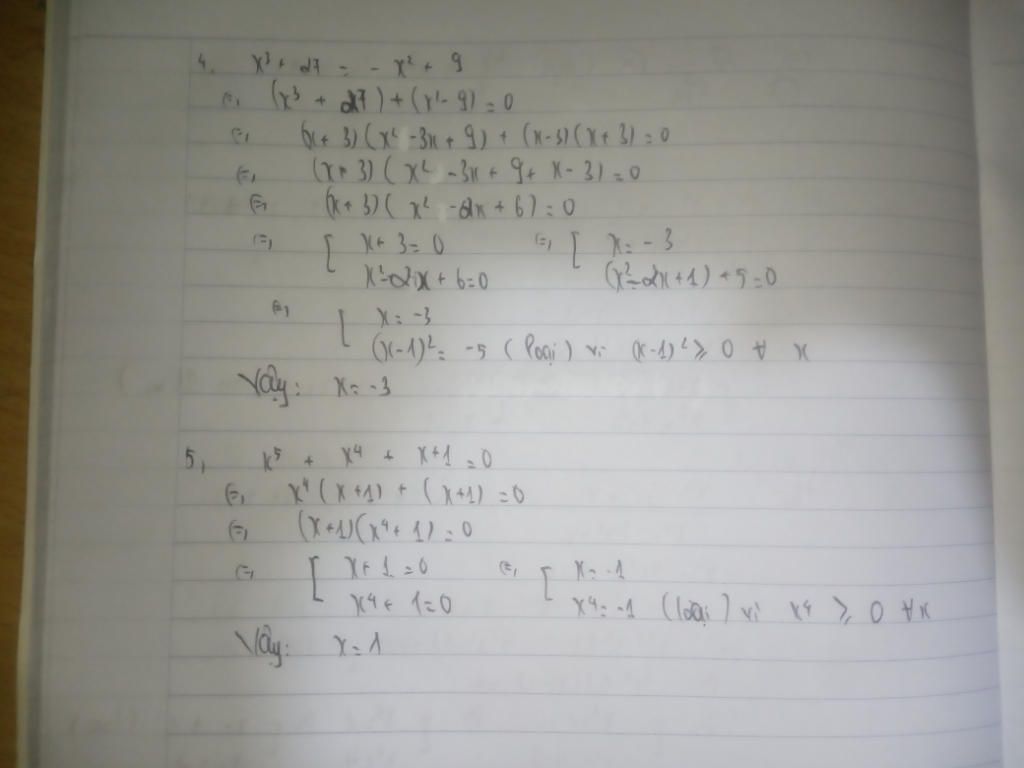 4. x³ + 27 = - x² + 9
⇔ (x³ + 27) + (x² - 9) = 0
⇔ (x + 3)(x² - 3x + 9) + (x - 3)(x + 3) = 0
⇔ (x + 3)(x² - 3x + 9 + x - 3) = 0
⇔ (x + 3)(x² - 2x + 6) = 0
⇔ [ x + 3 = 0 ⇔ [ x = - 3
x² - 2x + 6 = 0 (x² - 2x + 1) + 5 = 0
⇔ [ x = -3
(x - 1)² = -5 (loại) vì (x - 1)² ≥ 0 ∀ x
Vậy: x = -3
5, x⁵ + x⁴ + x + 1 = 0
⇔ x⁴(x + 1) + (x + 1) = 0
⇔ (x + 1)(x⁴ + 1) = 0
⇔ [ x + 1 = 0 ⇔ [ x = -1
x⁴ + 1 = 0 x⁴ = -1 (loại) vì x⁴ ≥ 0 ∀x
Vậy: x = 1